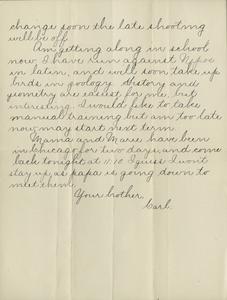 change soon the late shooting
will be off.
Am getting along in school
now, I have run against
in latin, and will soon take up
birds in zoology. History and
geometry are easiest for me, but
interesting. I would like to take
manual training but am too late
now, may start next term.
Mama and Marie have been
in Chicago for two days, and come
back tonight at 11:10 I guess I won't
stay up, as papa is going down to
meet them.
Your brother,
Carl.